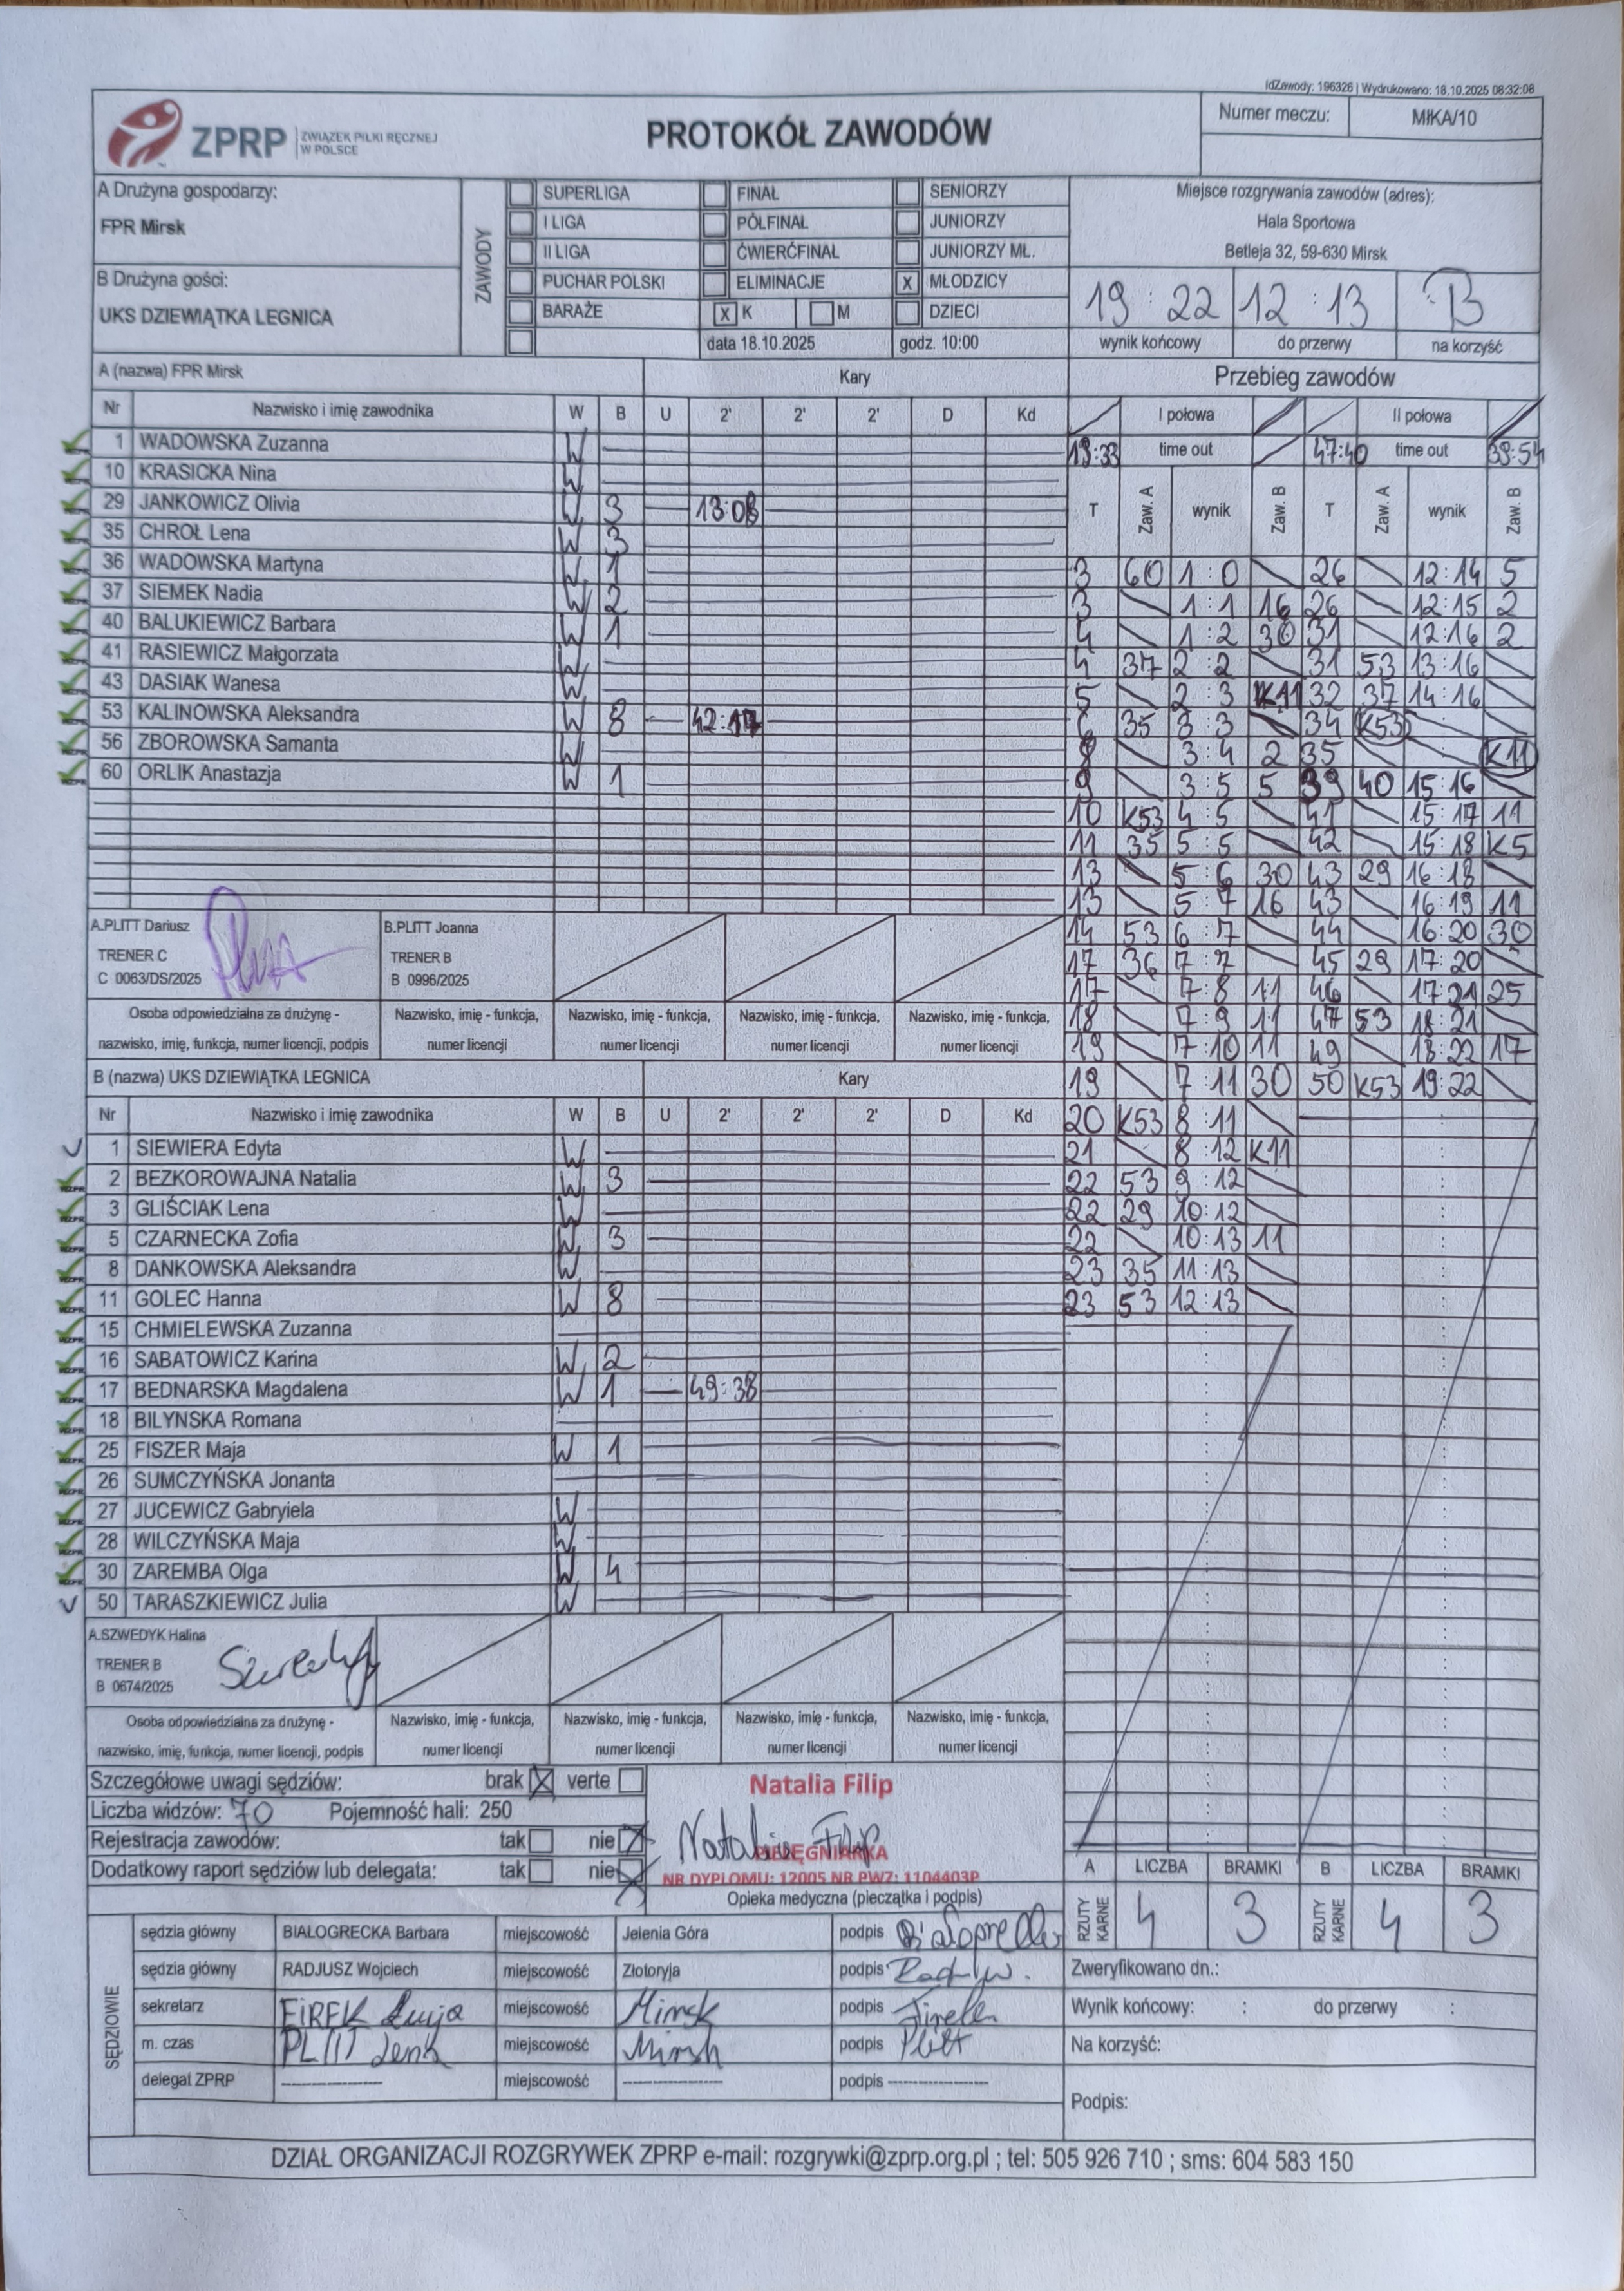 idZawody: 196326 | Wydrukowano: 18.10.2025 08:32:08
ZPRP ZWIĄZEK PIŁKI RĘCZNEJ W POLSCE
PROTOKÓŁ ZAWODÓW
Numer meczu: MłKA/10
A Drużyna gospodarzy:
FPR Mirsk
B Drużyna gości:
UKS DZIEWIĄTKA LEGNICA
ZAWODY
SUPERLIGA FINAŁ SENIORZY
I LIGA PÓŁFINAŁ JUNIORZY
II LIGA ĆWIERĆFINAŁ JUNIORZY MŁ.
PUCHAR POLSKI ELIMINACJE X MŁODZICY
BARAŻE X K M DZIECI
data 18.10.2025 godz. 10:00
Miejsce rozgrywania zawodów (adres):
Hala Sportowa
Betleja 32, 59-630 Mirsk
19 : 22 12 : 13 B
wynik końcowy do przerwy na korzyść
A (nazwa) FPR Mirsk Kary
Nr Nazwisko i imię zawodnika W B U 2' 2' 2' D Kd
1 WADOWSKA Zuzanna W
10 KRASICKA Nina W
29 JANKOWICZ Olivia W 3 13:08
35 CHROŁ Lena W 3
36 WADOWSKA Martyna W 1
37 SIEMEK Nadia W 2
40 BALUKIEWICZ Barbara W 1
41 RASIEWICZ Małgorzata W
43 DASIAK Wanesa W
53 KALINOWSKA Aleksandra W 8 42:17
56 ZBOROWSKA Samanta W
60 ORLIK Anastazja W 1
A.PLITT Dariusz
TRENER C
C 0063/DS/2025
B.PLITT Joanna
TRENER B
B 0996/2025
Osoba odpowiedzialna za drużynę -
nazwisko, imię, funkcja, numer licencji, podpis
Nazwisko, imię - funkcja, numer licencji
Nazwisko, imię - funkcja, numer licencji
Nazwisko, imię - funkcja, numer licencji
Nazwisko, imię - funkcja, numer licencji
B (nazwa) UKS DZIEWIĄTKA LEGNICA Kary
Nr Nazwisko i imię zawodnika W B U 2' 2' 2' D Kd
1 SIEWIERA Edyta W
2 BEZKOROWAJNA Natalia W 3
3 GLIŚCIAK Lena W
5 CZARNECKA Zofia W 3
8 DANKOWSKA Aleksandra W
11 GOLEC Hanna W 8
15 CHMIELEWSKA Zuzanna
16 SABATOWICZ Karina W 2
17 BEDNARSKA Magdalena W 1 49:38
18 BILYNSKA Romana
25 FISZER Maja W 1
26 SUMCZYŃSKA Jonanta
27 JUCEWICZ Gabryiela W
28 WILCZYŃSKA Maja W
30 ZAREMBA Olga W 4
50 TARASZKIEWICZ Julia W
A.SZWEDYK Halina
TRENER B
B 0674/2025
Osoba odpowiedzialna za drużynę -
nazwisko, imię, funkcja, numer licencji, podpis
Nazwisko, imię - funkcja, numer licencji
Nazwisko, imię - funkcja, numer licencji
Nazwisko, imię - funkcja, numer licencji
Nazwisko, imię - funkcja, numer licencji
Przebieg zawodów
I połowa II połowa
19:33 time out 47:40 time out 39:54
T Zaw. A wynik Zaw. B T Zaw. A wynik Zaw. B
3 60 1 : 0 26 12:14 5
3 1 : 1 16 26 12:15 2
4 1 : 2 30 31 12:16 2
4 37 2 : 2 31 53 13:16
5 2 : 3 K11 32 37 14:16
6 35 3 : 3 34 K53
8 3 : 4 2 35 K11
9 3 : 5 5 39 40 15:16
10 K53 4 : 5 41 15:17 11
11 35 5 : 5 42 15:18 K5
13 5 : 6 30 43 29 16:18
13 5 : 7 16 43 16:19 11
14 53 6 : 7 44 16:20 30
17 36 7 : 7 45 29 17:20
17 7 : 8 11 46 17:21 25
18 7 : 9 11 47 53 18:21
19 7 : 10 11 49 18:22 17
19 7 : 11 30 50 K53 19:22
20 K53 8 : 11
21 8 : 12 K11
22 53 9 : 12
22 29 10:12
22 10:13 11
23 35 11:13
23 53 12:13
Szczegółowe uwagi sędziów: brak X verte
Liczba widzów: 70 Pojemność hali: 250
Rejestracja zawodów: tak nie X
Dodatkowy raport sędziów lub delegata: tak nie X
Natalia Filip
Natalia Filip
PIELĘGNIARKA
NR DYPLOMU: 12005 NR PWZ: 1104403P
Opieka medyczna (pieczątka i podpis)
A LICZBA BRAMKI B LICZBA BRAMKI
RZUTY KARNE 4 3 RZUTY KARNE 4 3
SĘDZIOWIE
sędzia główny BIAŁOGRECKA Barbara miejscowość Jelenia Góra podpis
sędzia główny RADJUSZ Wojciech miejscowość Złotoryja podpis
sekretarz miejscowość Mirsk podpis
m. czas PLITT miejscowość Mirsk podpis Plitt
delegat ZPRP miejscowość podpis
Zweryfikowano dn.:
Wynik końcowy: : do przerwy :
Na korzyść:
Podpis:
DZIAŁ ORGANIZACJI ROZGRYWEK ZPRP e-mail: rozgrywki@zprp.org.pl ; tel: 505 926 710 ; sms: 604 583 150